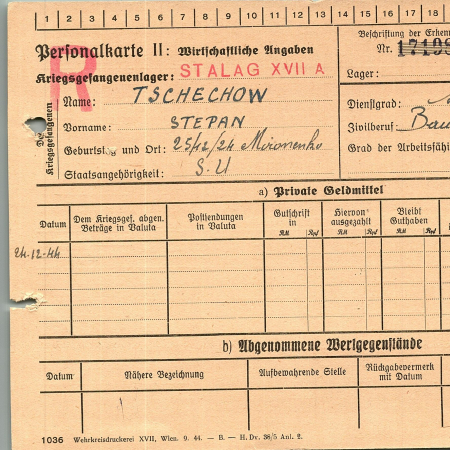 1 2 3 4 5 6 7 8 9 10 11 12 13 14 15 16 17 18
Personalkarte II: Wirtschaftliche Angaben
Beschriftung der Erken
Nr.
R
Kriegsgefangenenlager: STALAG XVII A
Lager:
Des Kriegsgefangenen
Name: TSCHECHOW
Dienstgrad:
Vorname: STEPAN
Zivilberuf: Bau
Geburtstag und Ort: 25/12/24 Mironenko
Grad der Arbeitsfähi
Staatsangehörigkeit: S.U
a) Private Geldmittel
Datum
Dem Kriegsgef. abgen. Beträge in Valuta
Postsendungen in Valuta
Gutschrift in
RM Rpf
Hiervon ausgezahlt
RM Rpf
Bleibt Guthaben
RM Rpf
24.12.44
b) Abgenommene Wertgegenstände
Datum
Nähere Bezeichnung
Aufbewahrende Stelle
Rückgabevermerk mit Datum
1036 Wehrkreisdruckerei XVII, Wien. 9. 44. — B. — H. Dv. 38/5 Anl. 2.